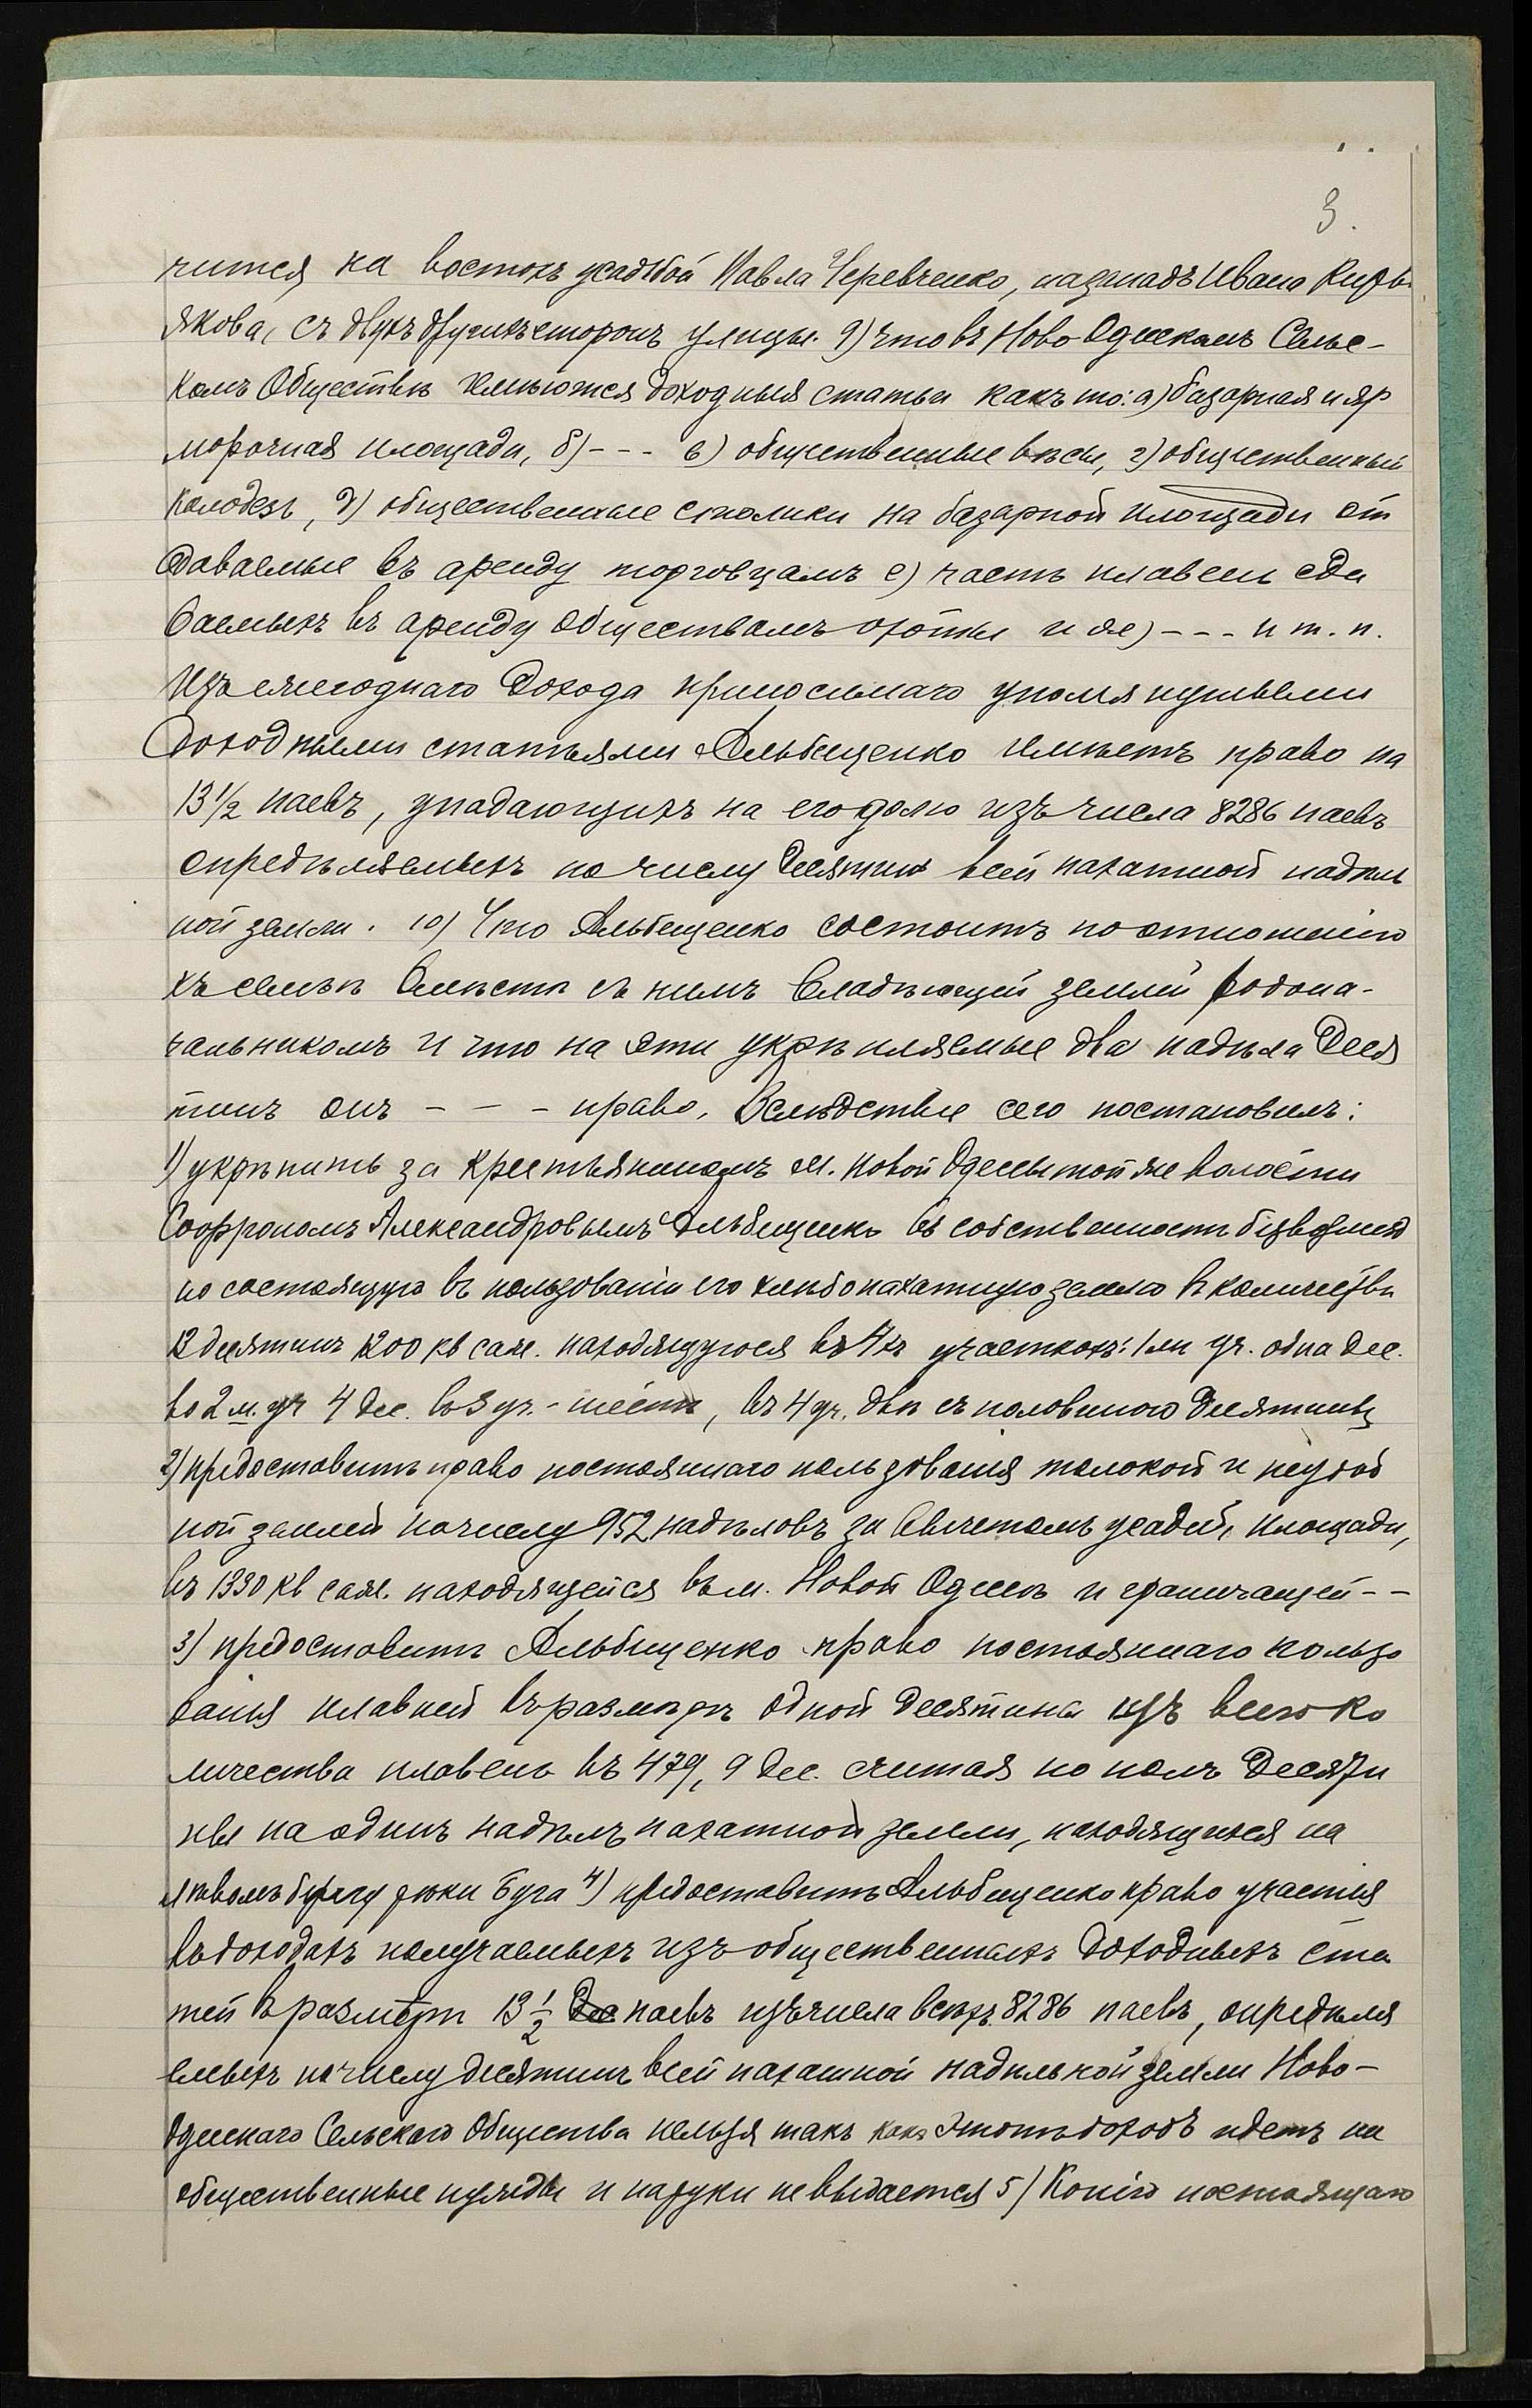 3.
чится на востокъ усадьбой Павла Черевченко, назападъ Ивана Кирь
якова, съ двухъ другихъ сторонъ улицы. 9) Что въ Ново-Одесскомъ Сельс-
комъ Обществѣ имѣются доходныя статьи какъ то: а) базарная и яр
морочная площади, б) - - - в) общественные вѣсы, г) общественный
колодезь, д) общественные столики на базарной площади от
даваемые въ аренду торговцамъ е) часть плавень сда
ваемыхъ въ аренду обществамъ охоты и ж) - - - и т. п.
Изъ ежегоднаго дохода приносимаго упомянутыми
доходными статьями Альбещенко имѣетъ право на
13 1/2 паевъ, упадающихъ на его долю изъ числа 8286 паевъ
опредѣляемыхъ по числу десятин всей пахатной надѣль
ной земли. 10) Что Альбещенко состоитъ по отношенію
къ семьѣ вмѣстѣ съ нимъ владѣющей землей родона-
чальникомъ и что на эти укрѣпляемые два надѣла деся
тинъ онъ - - - право, Вслѣдствіе сего постановилъ:
1) укрѣпить за крестьяниномъ м. Новой Одессы той же волости
Софрономъ Александровымъ Альбещенко въ собственность безвозмезд
но состоящую въ пользованіи его хлебопахатную землю въ количествѣ
13 десятинъ 1200 кв саж. находящуюся въ 4хъ участкахъ: 1мъ уч. одна дес.
во 2 м. уч 4 дес. въ 3 уч. - шесть, въ 4 уч. двѣ съ половиною десятины
2) предоставить право постояннаго пользованія толокой и неудоб
ной землей по числу 952 надѣловъ за вычетомъ усадеб, площади,
въ 1330 кв саж. находящейся въ м. Новой Одессѣ и граничащей - -
3) предоставить Альбещенко право постояннаго пользо
ванія плавней въ размѣрѣ одной десятины изъ всего ко
личества плавень въ 479,9 дес. считая по полъ десяти
ны на одинъ надѣлъ пахатной земли, находящихся на
лѣвомъ берегу рѣки Буга 4) предоставить Альбещенко право участія
въ доходахъ получаемыхъ изъ общественныхъ доходныхъ ста
тей въ размѣрѣ 13 1/2 паевъ изъ числа всѣхъ 8286 паевъ, опредѣля
емыхъ по числу десятинъ всей пахатной надѣльной земли Ново-
Одесскаго Сельскаго Общества нельзя такъ какъ этотъ доходъ идетъ на
общественные нужды и на руки не выдается 5) Копію настоящаго